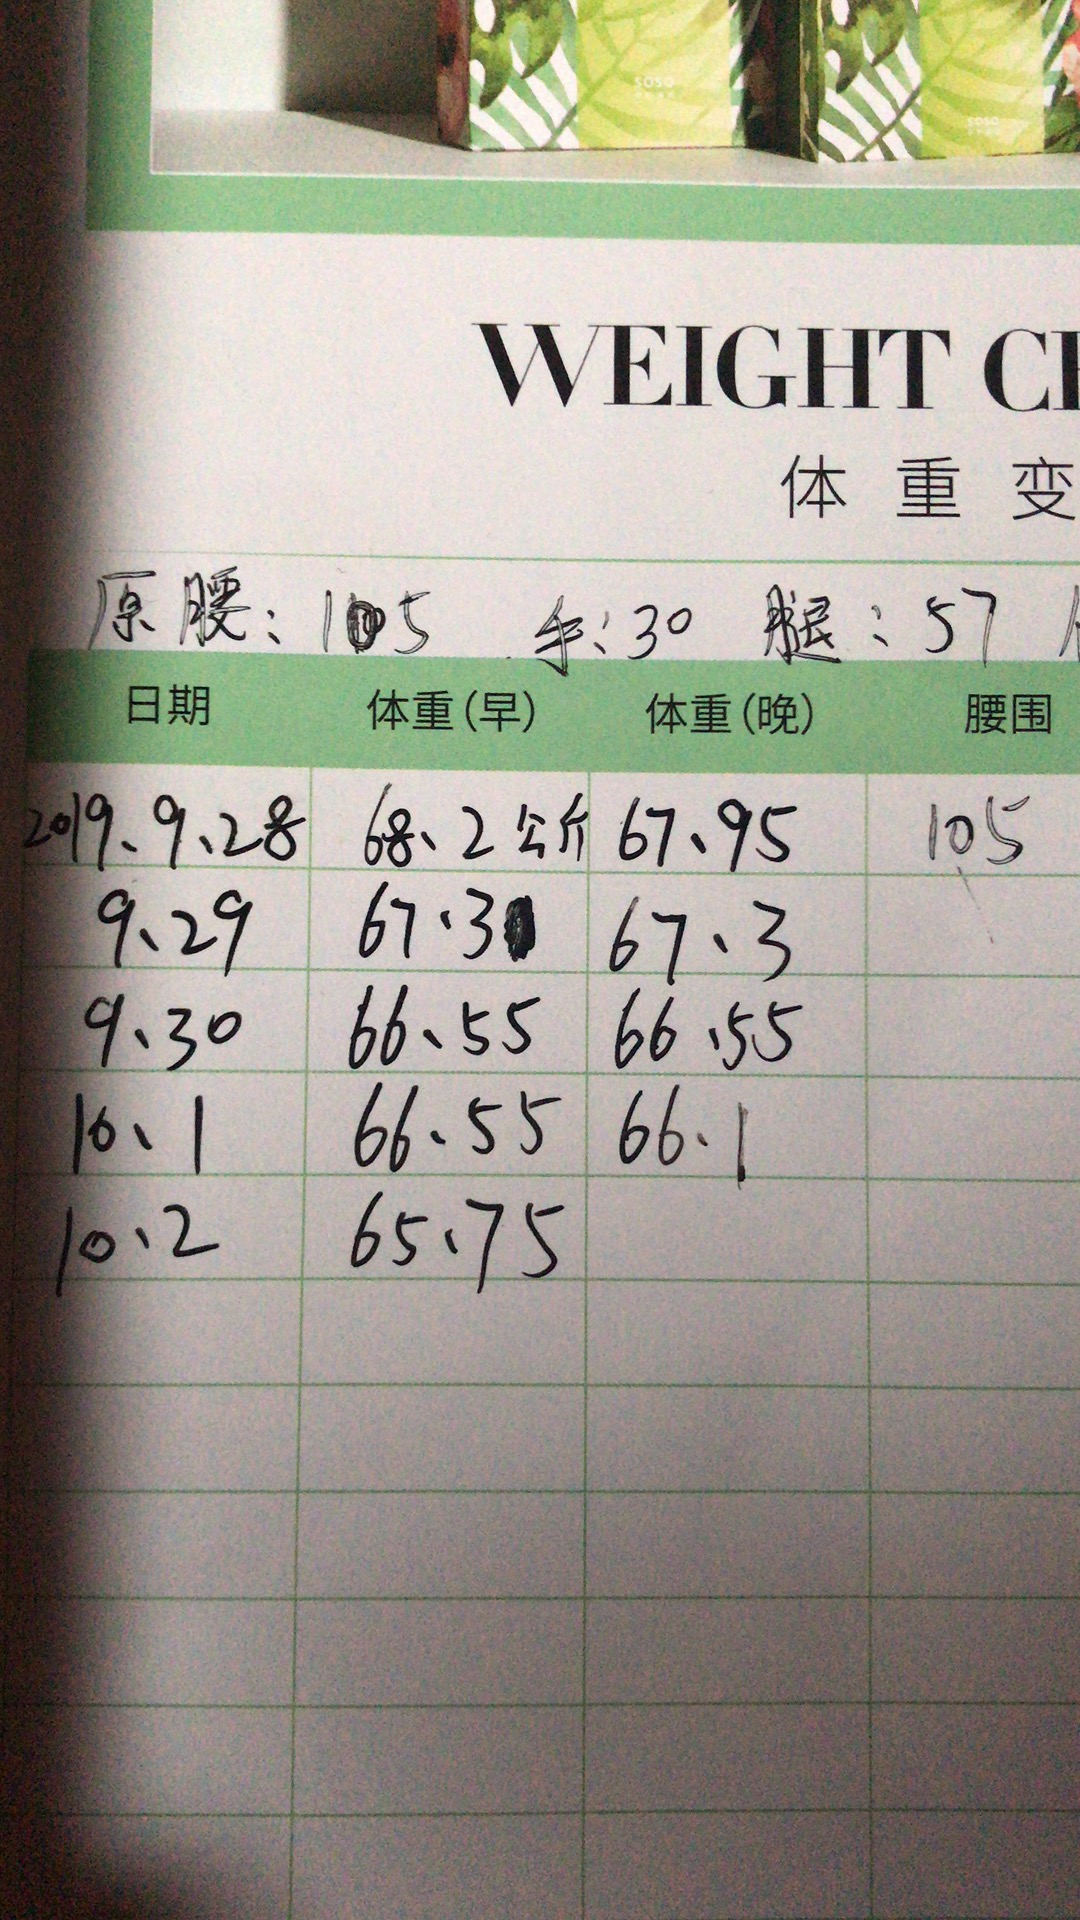 SOSO
SOSO
WEIGHT CH
体重变
原腰：105 手：30 腿：57
日期 体重（早） 体重（晚） 腰围
2019、9、28 68、2公斤 67、95 105
9、29 67.3 67、3
9、30 66、55 66.55
10、1 66.55 66.1
10、2 65.75